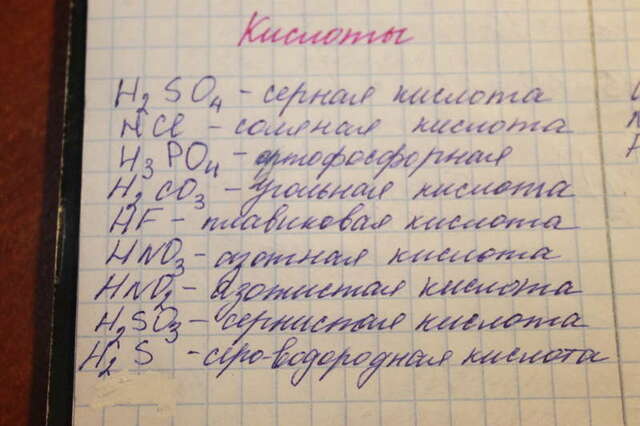 Кислоты
H₂SO₄ - серная кислота
HCl - соляная кислота
H₃PO₄ - ортофосфорная
H₂CO₃ - угольная кислота
HF - плавиковая кислота
HNO₃ - азотная кислота
HNO₂ - азотистая кислота
H₂SO₃ - сернистая кислота
H₂S - сероводородная кислота